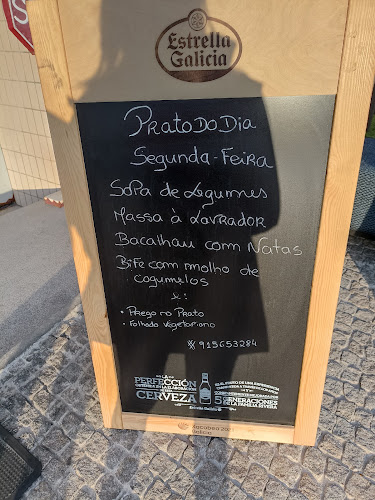 Estrella
Galicia
PRATO DO DIA
SEGUNDA-FEIRA
SOPA de Legumes
MASSA à LAVRADOR
Bacalhau com NATAS
Bife com molho de
cogumelos
e:
• PREGO no PRATO
• Folhado vegetariano
915653284
LA
PERFECCIÓN
CERVEZA
5 GENERACIONES
DE LA FAMILIA RIVERA
Estrella Galicia
Galicia